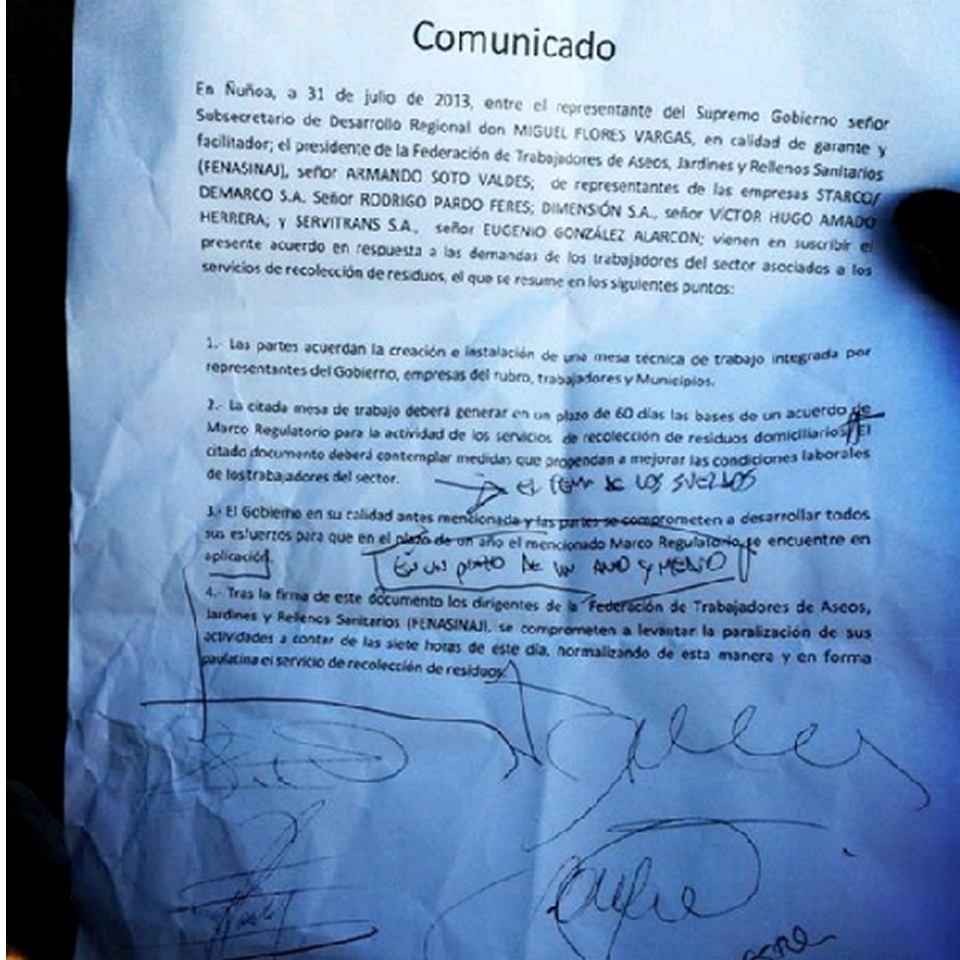 Comunicado
En Ñuñoa, a 31 de julio de 2013, entre el representante del Supremo Gobierno señor
Subsecretario de Desarrollo Regional don MIGUEL FLORES VARGAS, en calidad de garante y
facilitador; el presidente de la Federación de Trabajadores de Aseos, Jardines y Rellenos Sanitarios
(FENASINAJ), señor ARMANDO SOTO VALDES; de representantes de las empresas STARCO/
DEMARCO S.A. Señor RODRIGO PARDO FERES; DIMENSIÓN S.A., señor VÍCTOR HUGO AMADO
HERRERA; y SERVITRANS S.A., señor EUGENIO GONZÁLEZ ALARCON; vienen en suscribir el
presente acuerdo en respuesta a las demandas de los trabajadores del sector asociados a los
servicios de recolección de residuos, el que se resume en los siguientes puntos:
1.- Las partes acuerdan la creación e instalación de una mesa técnica de trabajo integrada por
representantes del Gobierno, empresas del rubro, trabajadores y Municipios.
2.- La citada mesa de trabajo deberá generar en un plazo de 60 días las bases de un acuerdo de
Marco Regulatorio para la actividad de los servicios de recolección de residuos domiciliarios. El
citado documento deberá contemplar medidas que propendan a mejorar las condiciones laborales
de los trabajadores del sector. EL TEMA DE LOS SUELDOS
3.- El Gobierno en su calidad antes mencionada y las partes se comprometen a desarrollar todos
sus esfuerzos para que en el plazo de un año el mencionado Marco Regulatorio se encuentre en
aplicación. EN UN PLAZO DE UN AÑO Y MEDIO
4.- Tras la firma de este documento los dirigentes de la Federación de Trabajadores de Aseos,
Jardines y Rellenos Sanitarios (FENASINAJ), se comprometen a levantar la paralización de sus
actividades a contar de las siete horas de este día, normalizando de esta manera y en forma
paulatina el servicio de recolección de residuos.